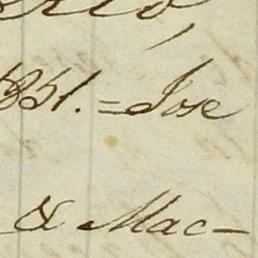 1851. = Jose
& Mac-